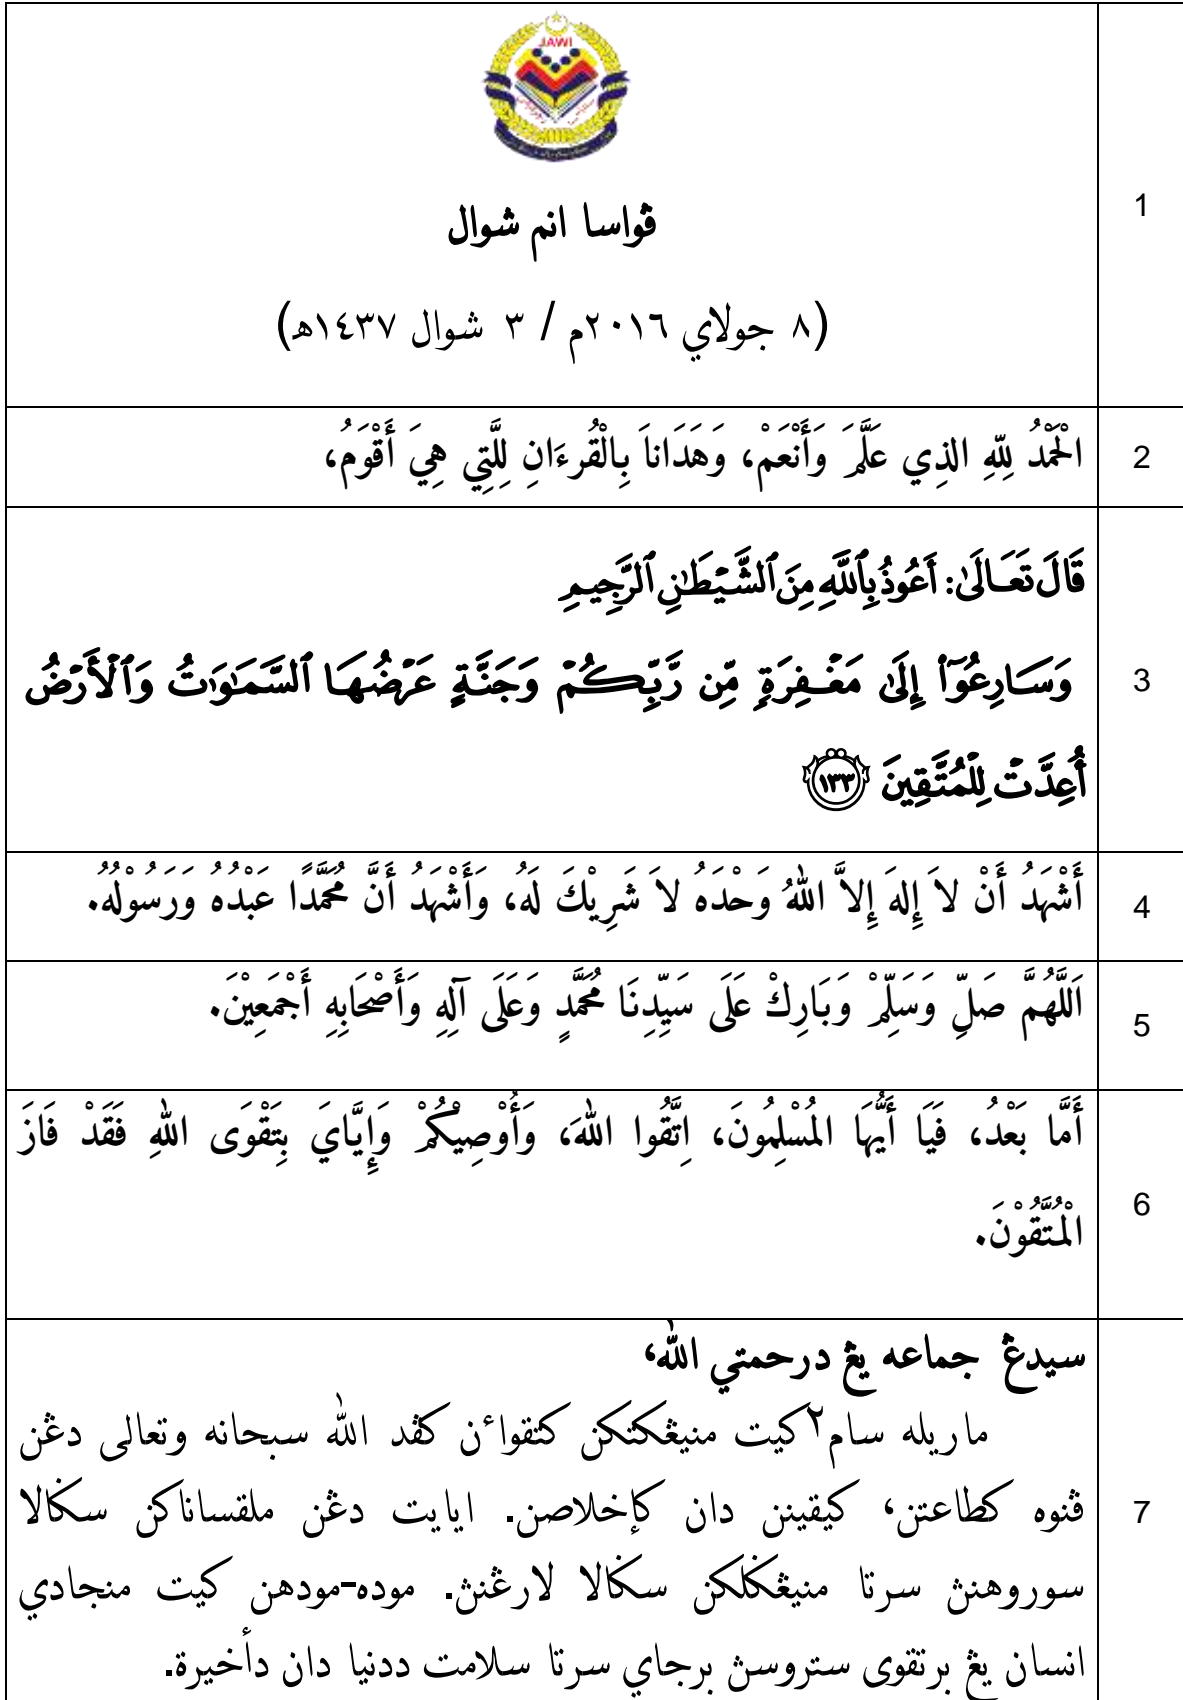 JAWI
ڤواسا انم شوال
(٨ جولاي ٢٠١٦م / ٣ شوال ١٤٣٧ه)
1
الْحَمْدُ لِلّهِ الذِي عَلَّمَ وَأَنْعَمْ، وَهَدَاناَ بِالْقُرءَانِ لِلَّتِي هِيَ أَقْوَمُ،
2
قَالَ تَعَالَىٰ: أَعُوذُ بِٱللَّهِ مِنَ ٱلشَّيْطَٰنِ ٱلرَّجِيمِ
وَسَارِعُوٓا۟ إِلَىٰ مَغْفِرَةٍ مِّن رَّبِّكُمْ وَجَنَّةٍ عَرْضُهَا ٱلسَّمَٰوَٰتُ وَٱلْأَرْضُ
أُعِدَّتْ لِلْمُتَّقِينَ ١٣٣
3
أَشْهَدُ أَنْ لاَ إِلهَ إِلاَّ اللهُ وَحْدَهُ لاَ شَرِيْكَ لَهُ، وَأَشْهَدُ أَنَّ مُحَمَّدًا عَبْدُهُ وَرَسُوْلُهُ.
4
اَللَّهُمَّ صَلِّ وَسَلِّمْ وَبَارِكْ عَلَى سَيِّدِنَا مُحَمَّدٍ وَعَلَى آلِهِ وَأَصْحَابِهِ أَجْمَعِيْنَ.
5
أَمَّا بَعْدُ، فَيَا أَيُّهَا المُسْلِمُونَ، اِتَّقُوا اللهَ، وَأُوْصِيْكُمْ وَإِيَّايَ بِتَقْوَى اللهِ فَقَدْ فَازَ
الْمُتَّقُوْنَ.
6
سيدڠ جماعه يڠ درحمتي الله،
ماريله سام٢ كيت منيڠكتكن كتقواءن كڤد الله سبحانه وتعالى دڠن
ڤنوه كطاعتن، كيقينن دان كإخلاصن. ايايت دڠن ملقساناكن سݢالا
سوروهنڽ سرتا منيڠݢلكن سݢالا لارڠنڽ. موده-مودهن كيت منجادي
انسان يڠ برتقوى ستروسڽ برجاي سرتا سلامت ددنيا دان دأخيرة.
7